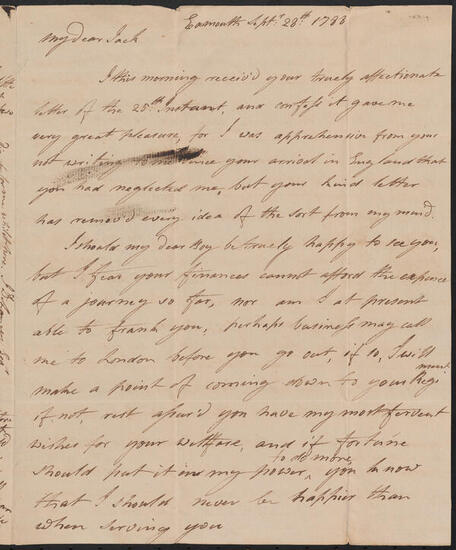 Exmouth Sept.r 28.th 1788
My dear Jack
I this morning receiv'd your truely affectionate
letter of the 25.th Instant, and confess it gave me
very great pleasure, for I was apprehensive from your
not writing to me since your arrival in England that
you had neglected me, but your kind letter
has remov'd every idea of the sort from my mind.
I should my dear Boy be truely happy to see you,
but I fear your finances cannot afford the expence
of a journey so far, nor am I at present
able to frank you, perhaps business may call
me to London before you go out, if so, I will
make a point of coming down to your Regi
ment
if not, rest assur'd you have my most fervent
wishes for your welfare, and if fortune
should put it in my power to do more, you know
that I should never be happier than
when serving you